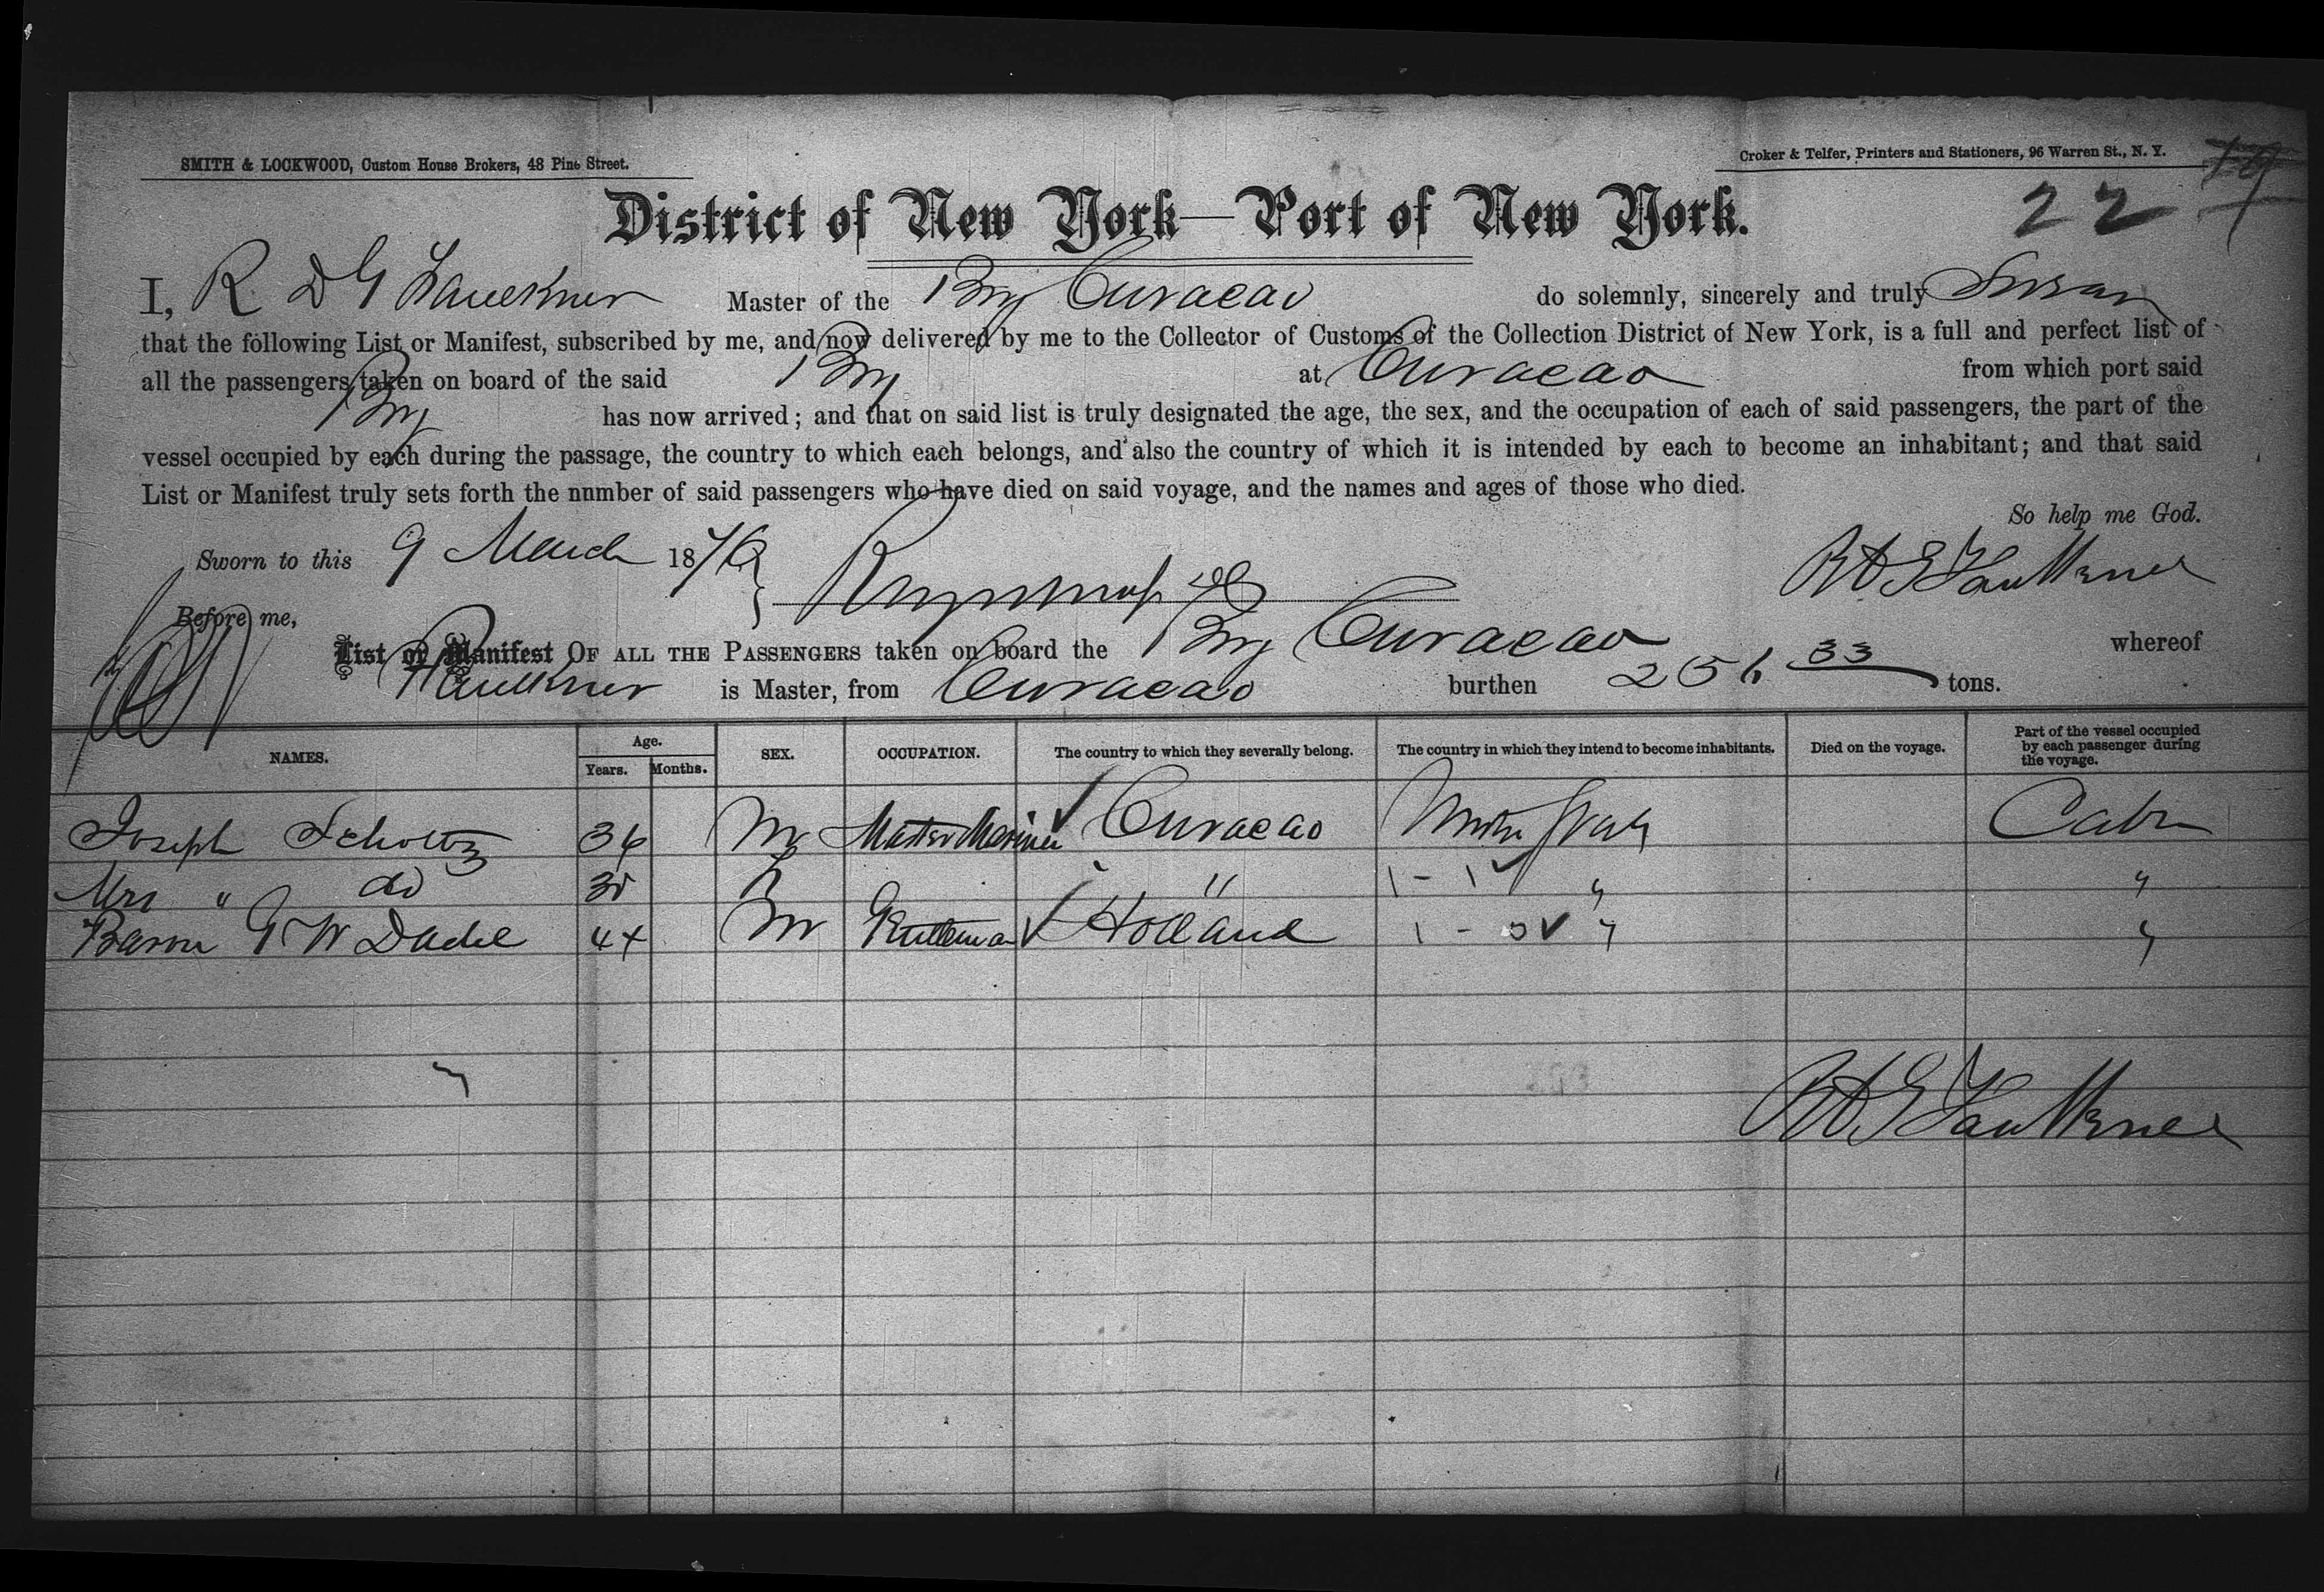 SMITH & LOCKWOOD, Custom House Brokers, 48 Pine Street.
Croker & Telfer, Printers and Stationers, 96 Warren St., N. Y.
22
District of New York—Port of New York.
I, R D G Faulkner Master of the Brig Curacao do solemnly, sincerely and truly Swear
that the following List or Manifest, subscribed by me, and now delivered by me to the Collector of Customs of the Collection District of New York, is a full and perfect list of
all the passengers taken on board of the said Brig at Curacao from which port said
Brig has now arrived; and that on said list is truly designated the age, the sex, and the occupation of each of said passengers, the part of the
vessel occupied by each during the passage, the country to which each belongs, and also the country of which it is intended by each to become an inhabitant; and that said
List or Manifest truly sets forth the number of said passengers who have died on said voyage, and the names and ages of those who died.
So help me God.
Sworn to this 9 March 1876
R D G Faulkner
Before me,
List or Manifest OF ALL THE PASSENGERS taken on board the Brig Curacao whereof
Faulkner is Master, from Curacao burthen 256 33 tons.
NAMES. Age. Years. Months. SEX. OCCUPATION. The country to which they severally belong. The country in which they intend to become inhabitants. Died on the voyage. Part of the vessel occupied by each passenger during the voyage.
Joseph Scholtz 36 M Master Mariner Curacao United States Cabin
Mrs " do 30 F " " "
Baron G W Dadel 44 M Gentleman Holland " "
R D G Faulkner